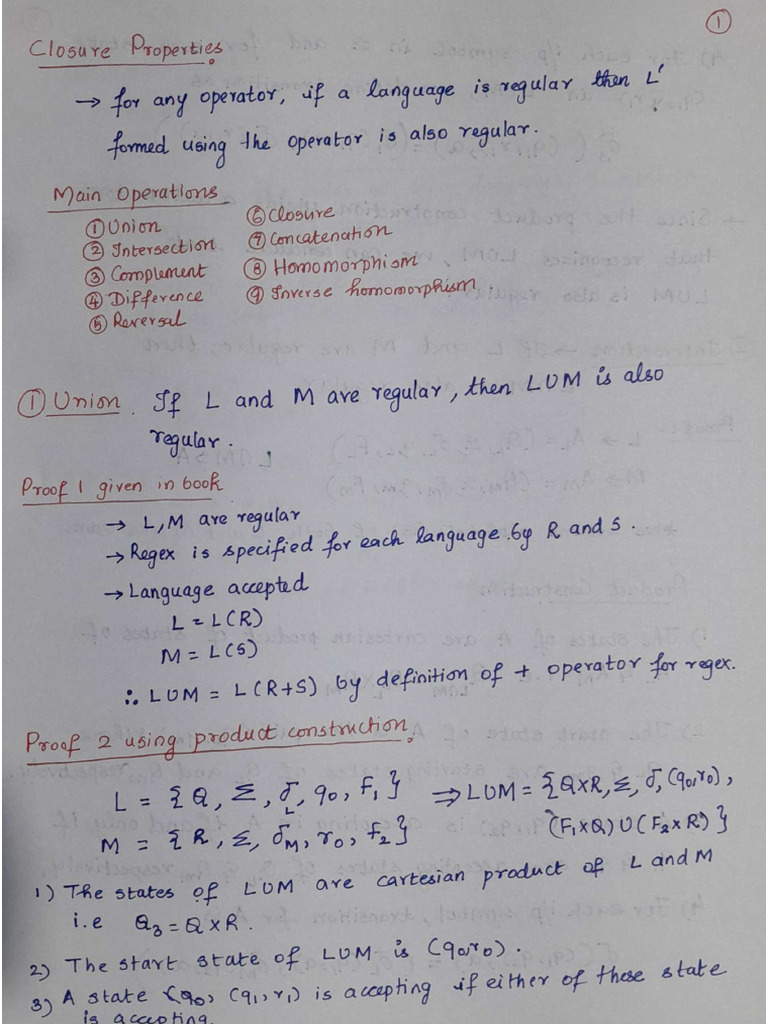 ①
Closure Properties
→ for any operator, if a language is regular then L'
formed using the operator is also regular.
Main Operations
① Union
② Intersection
③ Complement
④ Difference
⑤ Reversal
⑥ Closure
⑦ Concatenation
⑧ Homomorphism
⑨ Inverse homomorphism.
① Union. If L and M are regular, then LUM is also
regular.
Proof 1 given in book
→ L,M are regular
→ Regex is specified for each language by R and S.
→ Language accepted
L = L(R)
M = L(S)
∴ LUM = L(R+S) by definition of + operator for regex.
Proof 2 using product construction.
L = {Q, Σ, δL, q0, F1} ⇒ LUM = {QXR, Σ, δ, (q0,r0),
M = {R, Σ, δM, r0, f2} (F1XQ) U (F2XR)}
1) The states of LUM are cartesian product of L and M
i.e Q3 = QXR.
2) The start state of LUM is (q0,r0).
3) A state (q1,r1) is accepting if either of these state
is accepting.